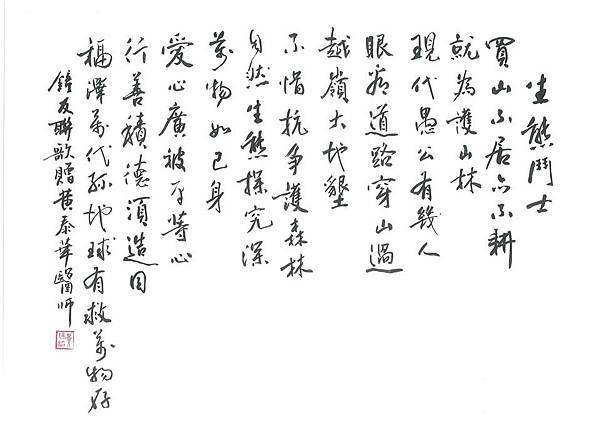 生態鬥士
買山不居亦不耕
就為護山林
現代愚公有幾人
眼看道路穿山過
越嶺大地墾
不惜抗争護森林
自然生態探究深
萬物如己身
愛心廣被平等心
行善積德須造因
福澤萬代孫地球有救萬物好
鍾友聯歌贈黃泰華醫師